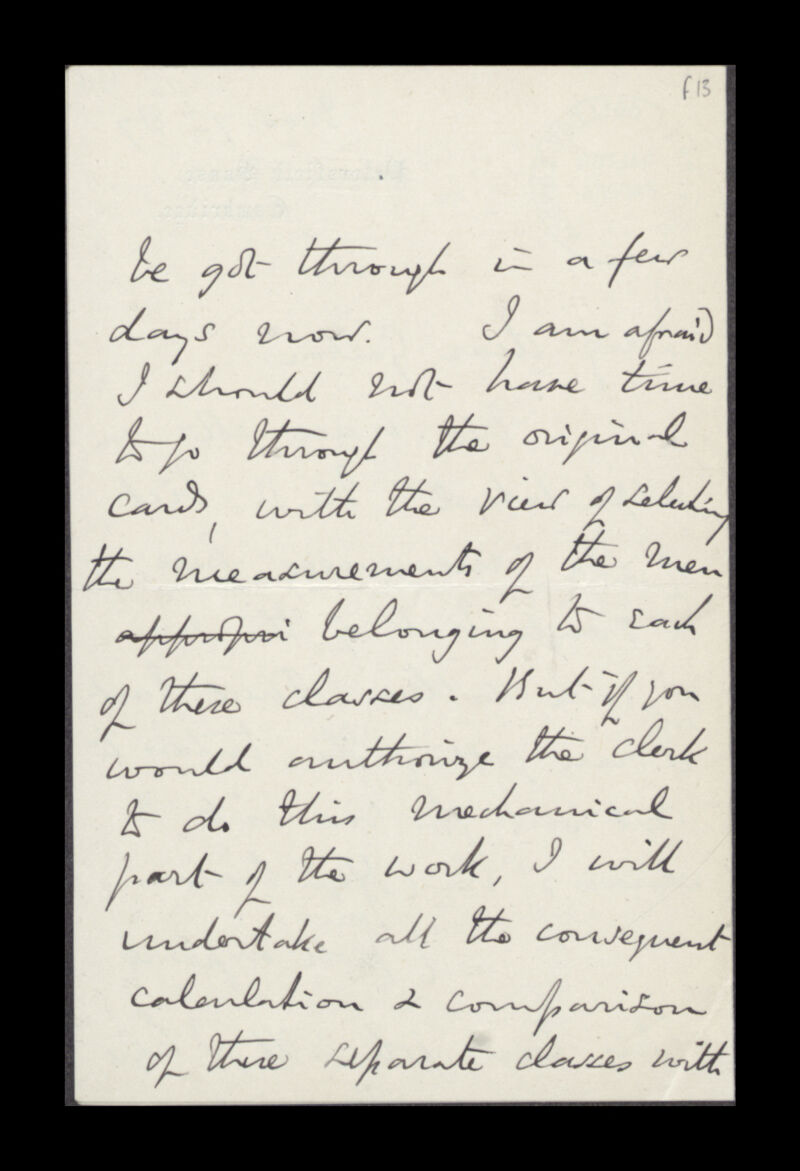 f 13
be got through in a few
days now. I am afraid
I should not have time
to go through the original
cards, with the view of selecting
the measurements of the men
appropri belonging to each
of these classes. But if you
would authorize the clerk
to do this mechanical
part of the work, I will
undertake all the consequent
calculation & comparison
of these separate classes with